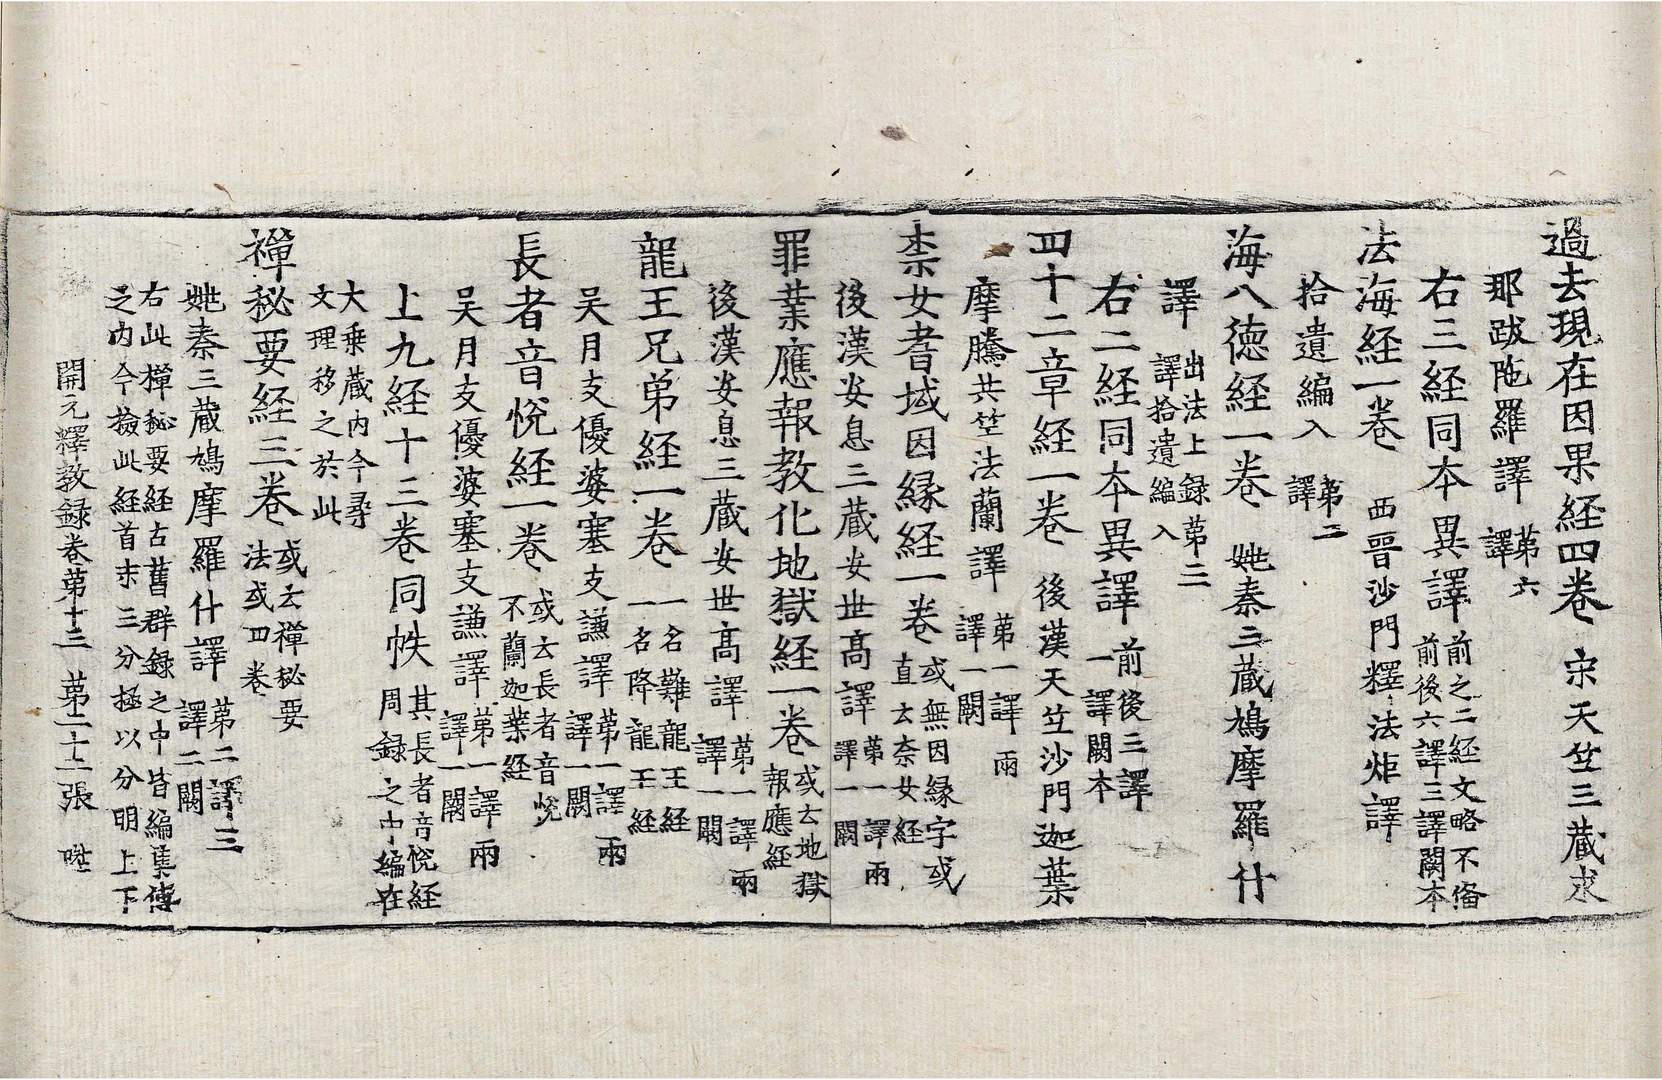 過去現在因果経四巻 宋天竺三蔵求
那跋陁羅譯 第六譯
右三経同本異譯 前之二経文略不俻前後六譯三譯闕本
法海経一巻 西晋沙門釋法炬譯
拾遺編入 第二譯
海八徳経一巻 姚秦三蔵鳩摩羅什
譯 出法上録第二譯拾遺編入
右二経同本異譯 前後三譯一譯闕本
四十二章経一巻 後漢天竺沙門迦葉
摩騰共竺法蘭譯 第一譯兩譯一闕
柰女耆域因縁経一巻 或無因縁字或直云奈女経
後漢安息三蔵安世髙譯 第一譯兩譯一闕
罪業應報教化地獄経一巻 或云地獄報應経
後漢安息三蔵安世髙譯 第一譯兩譯一闕
龍王兄弟経一巻 一名難龍王経一名降龍王経
吴月支優婆塞支謙譯 第一譯兩譯一闕
長者音悅経一巻 或云長者音悅不蘭迦葉経
吴月支優婆塞支謙譯 第一譯兩譯一闕
上九経十三巻同帙 其長者音悅経周録之中編在
大乗蔵内今尋文理移之於此
禅秘要経三巻 或云禅秘要法或四巻
姚秦三蔵鳩摩羅什譯 第二譯三譯二闕
右此禅秘要経古舊群録之中皆編集傳
之内今撿此経首末三分極以分明上下
開元釋教録巻第十三 第二十二張